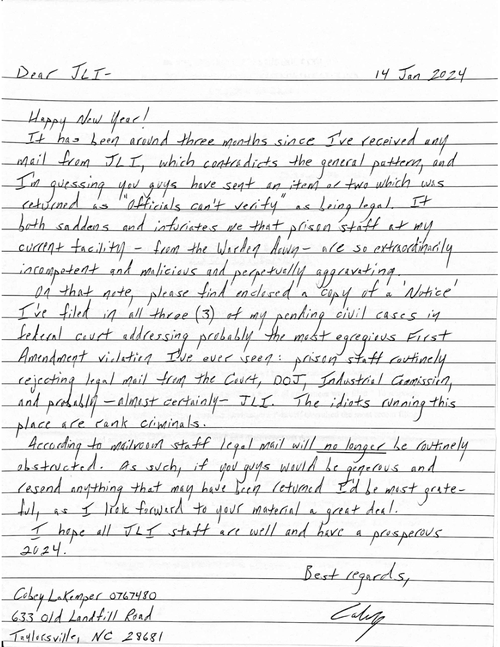 Dear JLI- 14 Jan 2024
Happy New Year!
It has been around three months since I've received any
mail from JLI, which contradicts the general pattern, and
I'm guessing you guys have sent an item or two which was
returned as "Officials can't verify" as being legal. It
both saddens and infuriates me that prison staff at my
current facility - from the Warden down - are so extraordinarily
incompetent and malicious and perpetually aggravating.
On that note, please find enclosed a copy of a 'Notice'
I've filed in all three (3) of my pending civil cases in
federal court addressing probably the most egregious First
Amendment violation I've ever seen: prison staff routinely
rejecting legal mail from the Court, DOJ, Industrial Commission,
and probably - almost certainly - JLI. The idiots running this
place are rank criminals.
According to mailroom staff legal mail will no longer be routinely
obstructed. As such, if you guys would be generous and
resend anything that may have been returned I'd be most grate-
ful, as I look forward to your material a great deal.
I hope all JLI staff are well and have a prosperous
2024.
Best regards,
Cobey LaKemper 0767480
633 Old Landfill Road
Taylorsville, NC 28681